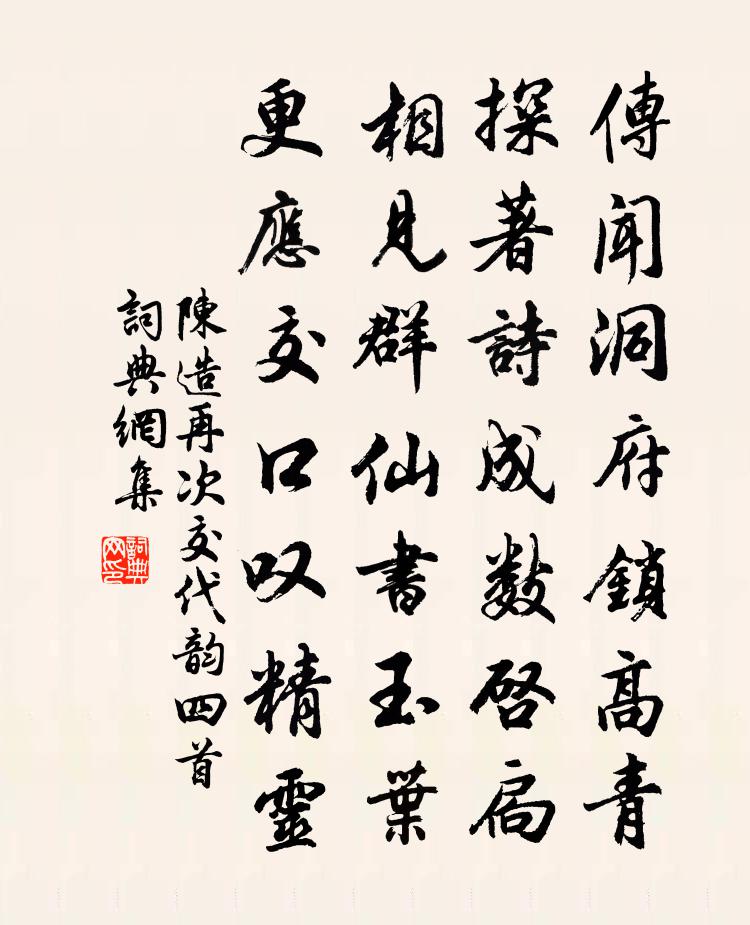 傳聞洞府鎖高青
探著詩成数啓扃
相見群仙書玉葉
更應交口叹精靈
陳造再次交代韵四首
詞典網集
詞典网印